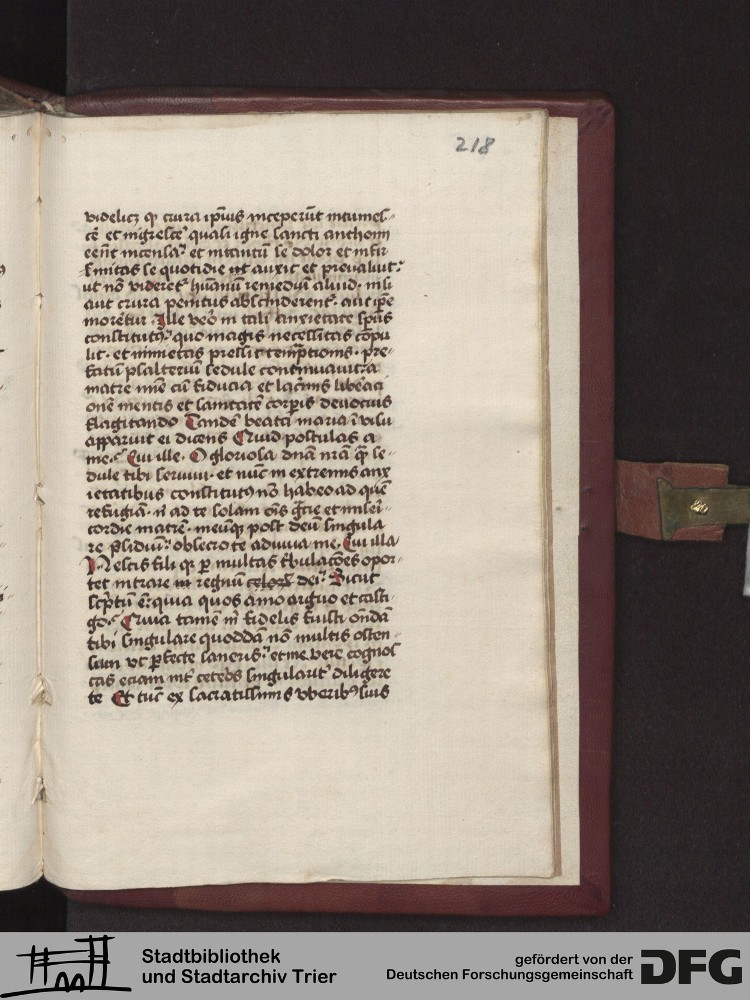 218
videlicz qꝫ crura ip̄ius inceperūt intumes-
cē et nigresce͛ quasi igne sancti anthonii
eēnt incensa· et intantū se dolor et infir
mitas se quotidie auxit et preualuit·
ut nō videret᷑ hūanū remediū aliud· nisi
aut crura penitus abscinderent᷑· aut ip̄e
morēᷣtur Ille vēo in tali anxietate sp̄us
constitutꝰ· quo magis necessitas cōpu
lit· et inmietas pressit temptīonis· pre-
fatū psalteriū sedule continuauit· a
matre mīe cū fiducia et lac͛mis lib͛aci
onē mentis et sanitatē corp͛is deuocius
flagitando Tandē beata maria ī visu
apparuit ei dicens Quid postulas a
me· Cui ille· O gloriosa dnā nr̄a qꝫ se-
dule tibi seruiui· et nūc in extremis anx
ietatibus constitutꝰ nō habeo ad quē
refugiā· n̄ ad te solam oīs gr̄e et miseri-
cordie matrē· meūqꝫ post deū singula
re p͛sidiū· obsecro te adiuua me· Cui illa
Nescis fili qꝫ ꝑ multas t͛bulacōes opor-
tet intrare in regnū celorꝝ dei· Sicut
scp̄tū ē· quia quos amo arguo et casti-
go· Quia tamē m̄ fidelis fuisti ondā
tibi singulare quoddā nō multis osten-
sum vt ꝑfecte saneris· et me vere cognos
cas eciam int͛ cetēos singularit͛ diligere
te Et tūc ex sacratissimis vberibꝰ suis
Stadtbibliothek
und Stadtarchiv Trier
gefördert von der
Deutschen Forschungsgemeinschaft
DFG